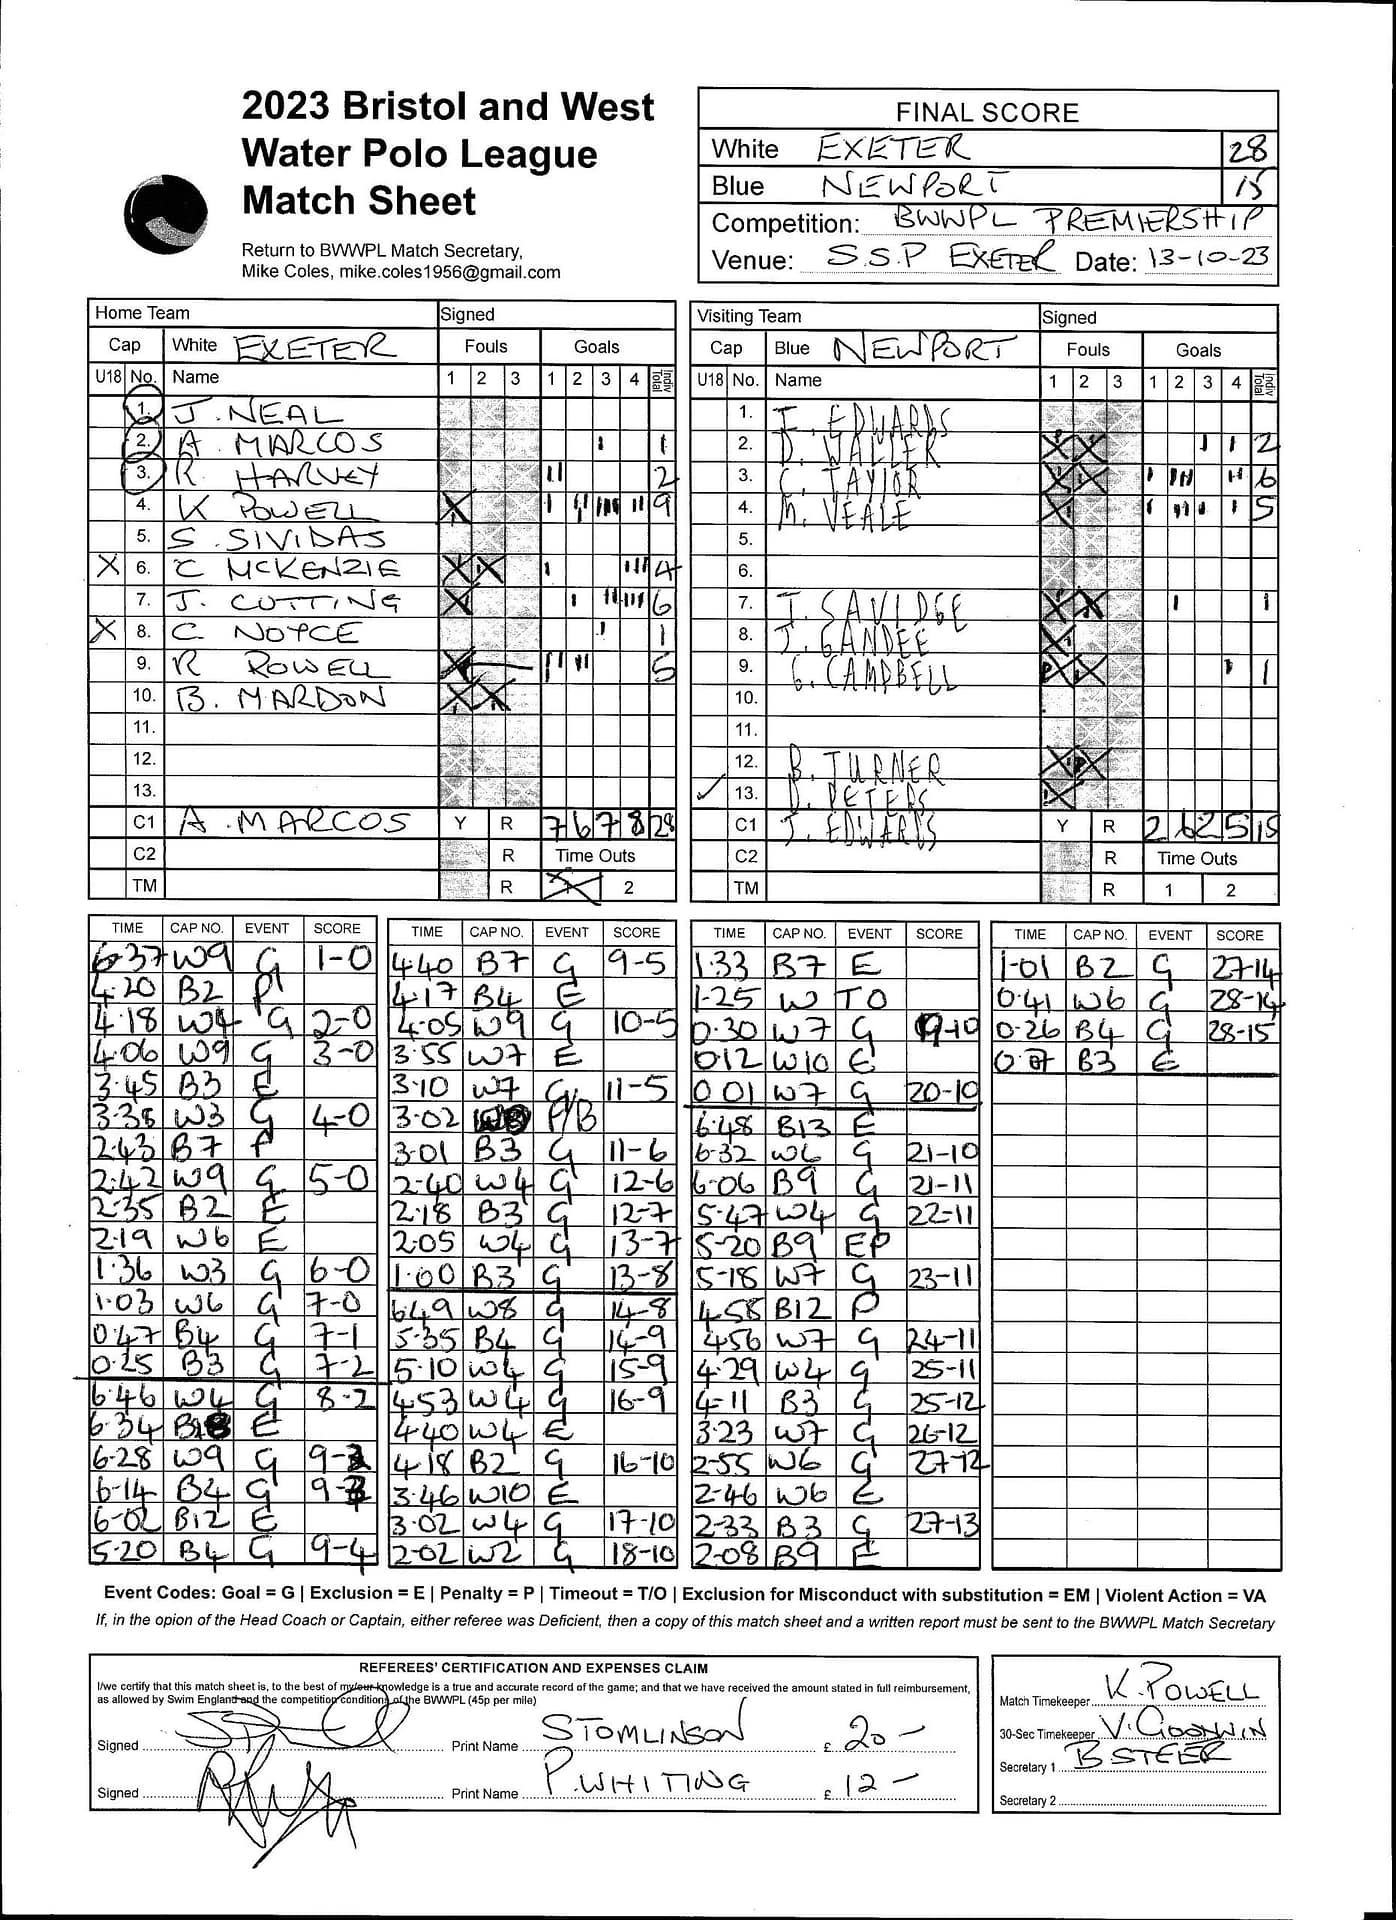 2023 Bristol and West
Water Polo League
Match Sheet
Return to BWWPL Match Secretary,
Mike Coles, mike.coles1956@gmail.com
FINAL SCORE
White EXETER 28
Blue NEWPORT 15
Competition: BWWPL PREMIERSHIP
Venue: S.S.P EXETER Date: 13-10-23
Home Team Signed
Cap White EXETER Fouls Goals
U18 No. Name 1 2 3 1 2 3 4 Indiv Total
1. J. NEAL
2. A MARCOS 1
3. R. HARVEY 2
4. K POWELL 9
5. S. SIVIDAS
X 6. C MCKENZIE 4
7. J. CUTTING 6
X 8. C. NOYCE 1
9. R ROWELL 5
10. B. MARDON
11.
12.
13.
C1 A. MARCOS Y R 7 6 7 8 28
C2 R Time Outs
TM R 2
Visiting Team Signed
Cap Blue NEWPORT Fouls Goals
U18 No. Name 1 2 3 1 2 3 4 Indiv Total
1. T. EDWARDS
2. D. WALLER 2
3. C. TAYLOR 6
4. M. VEALE 5
5.
6.
7. T. SAVIDGE 1
8. J. GANDEE
9. G. CAMPBELL 1
10.
11.
12. B. TURNER
13. D. PETERS
C1 J. EDWARDS Y R 2 6 2 5 15
C2 R Time Outs
TM R 1 2
TIME CAP NO. EVENT SCORE
6-37 W9 G 1-0
4-20 B2 P
4-18 W4 G 2-0
4-06 W9 G 3-0
3-45 B3 E
3-38 W3 G 4-0
2-43 B7 P
2-42 W9 G 5-0
2-35 B2 E
2-19 W6 E
1-36 W3 G 6-0
1-03 W6 G 7-0
0-47 B4 G 7-1
0-25 B3 G 7-2
6-46 W4 G 8-2
6-34 E
6-28 W9 G
6-14 B4 G
6-02 B12 E
5-20 B4 G 9-4
TIME CAP NO. EVENT SCORE
4-40 B7 G 9-5
4-17 B4 E
4-05 W9 G 10-5
3-55 W7 E
3-10 W7 G 11-5
3-02 P/B
3-01 B3 G 11-6
2-40 W4 G 12-6
2-18 B3 G 12-7
2-05 W4 G 13-7
1-00 B3 G 13-8
6-49 W8 G 14-8
5-35 B4 G 14-9
5-10 W4 G 15-9
4-53 W4 G 16-9
4-40 W4 E
4-18 B2 G 16-10
3-46 W10 E
3-02 W4 G 17-10
2-02 W2 G 18-10
TIME CAP NO. EVENT SCORE
1-33 B7 E
1-25 W TO
0-30 W7 G 19-10
0-12 W10 E
0-01 W7 G 20-10
6-48 B13 E
6-32 W6 G 21-10
6-06 B9 G 21-11
5-47 W4 G 22-11
5-20 B9 EP
5-18 W7 G 23-11
4-58 B12 P
4-56 W7 G 24-11
4-29 W4 G 25-11
4-11 B3 G 25-12
3-23 W7 G 26-12
2-55 W6 G 27-12
2-46 W6 E
2-33 B3 G 27-13
2-08 B9 E
TIME CAP NO. EVENT SCORE
1-01 B2 G 27-14
0-41 W6 G 28-14
0-26 B4 G 28-15
B3 E
Event Codes: Goal = G | Exclusion = E | Penalty = P | Timeout = T/O | Exclusion for Misconduct with substitution = EM | Violent Action = VA
If, in the opion of the Head Coach or Captain, either referee was Deficient, then a copy of this match sheet and a written report must be sent to the BWWPL Match Secretary
REFEREES' CERTIFICATION AND EXPENSES CLAIM
I/we certify that this match sheet is, to the best of my/our knowledge is a true and accurate record of the game; and that we have received the amount stated in full reimbursement,
as allowed by Swim England and the competition conditions of the BWWPL (45p per mile)
Signed Print Name STOMLINSON £ 20 -
Signed Print Name P. WHITING £ 12 -
Match Timekeeper K. POWELL
30-Sec Timekeeper V. GOODWIN
Secretary 1 B STEER
Secretary 2